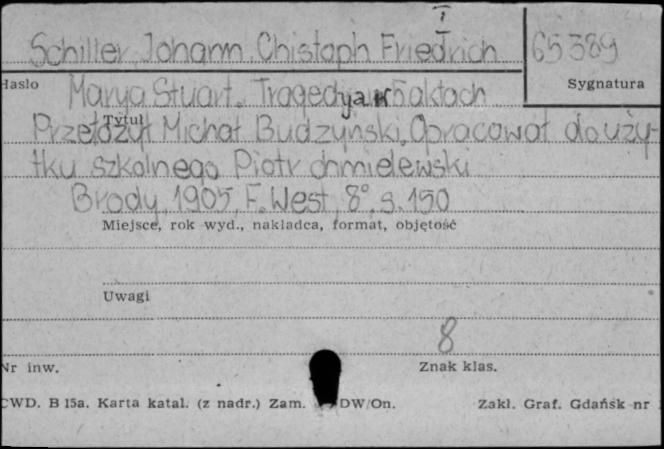 Schiller, Johann, Chistoph Friedrich 65389
Hasło Marya Stuart. Tragedya w 5 aktach Sygnatura
Tytuł
Przełożył Michał Budzyński, Opracował do uży-
tku szkolnego Piotr chmielewski
Brody, 1905, F. West, 8°, s. 150
Miejsce, rok wyd., nakładca, format, objętość
Uwagi
8
Nr inw. Znak klas.
CWD. B 15a. Karta katal. (z nadr.) Zam. DW/On. Zakł. Graf. Gdańsk nr